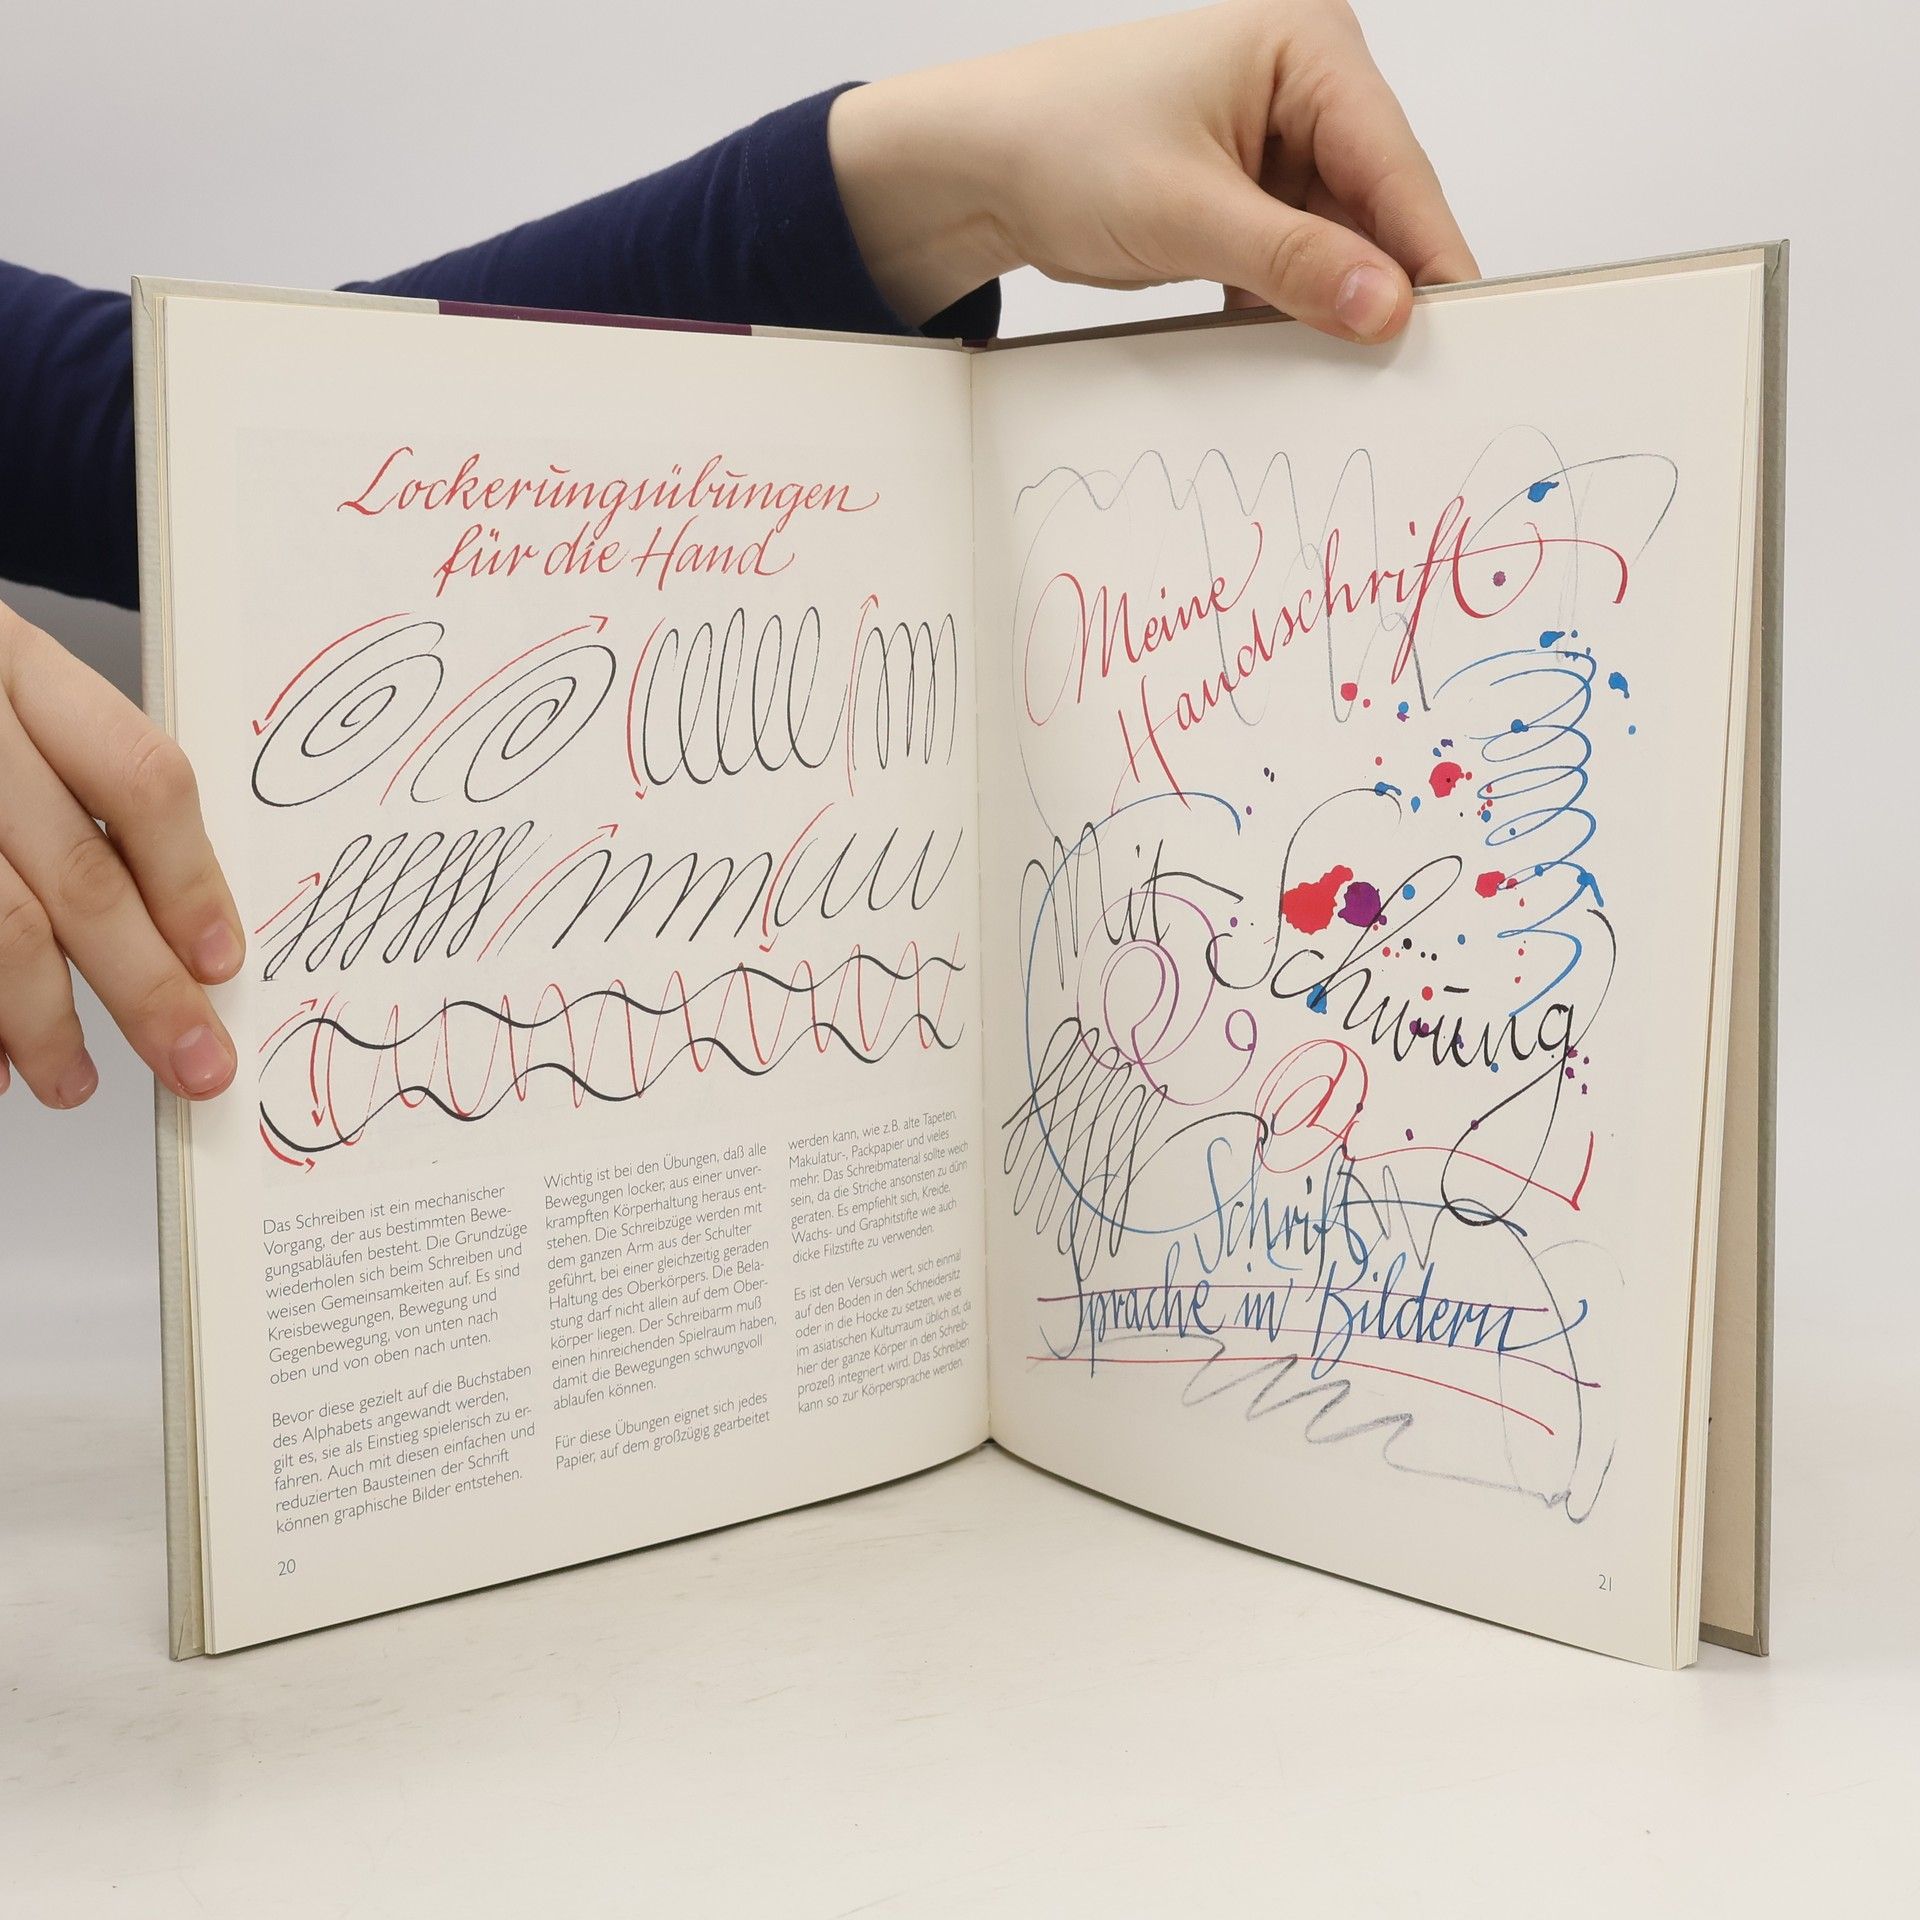 Lockerūngsübūngen
für die Hand
Das Schreiben ist ein mechanischer
Vorgang, der aus bestimmten Bewe-
gungsabläufen besteht. Die Grundzüge
wiederholen sich beim Schreiben und
weisen Gemeinsamkeiten auf. Es sind
Kreisbewegungen, Bewegung und
Gegenbewegung, von unten nach
oben und von oben nach unten.
Bevor diese gezielt auf die Buchstaben
des Alphabets angewandt werden,
gilt es, sie als Einstieg spielerisch zu er-
fahren. Auch mit diesen einfachen und
reduzierten Bausteinen der Schrift
können graphische Bilder entstehen.
Wichtig ist bei den Übungen, daß alle
Bewegungen locker, aus einer unver-
krampften Körperhaltung heraus ent-
stehen. Die Schreibzüge werden mit
dem ganzen Arm aus der Schulter
geführt, bei einer gleichzeitig geraden
Haltung des Oberkörpers. Die Bela-
stung darf nicht allein auf dem Ober-
körper liegen. Der Schreibarm muß
einen hinreichenden Spielraum haben,
damit die Bewegungen schwungvoll
ablaufen können.
Für diese Übungen eignet sich jedes
Papier, auf dem großzügig gearbeitet
werden kann, wie z.B. alte Tapeten,
Makulatur-, Packpapier und vieles
mehr. Das Schreibmaterial sollte weich
sein, da die Striche ansonsten zu dünn
geraten. Es empfiehlt sich, Kreide,
Wachs- und Graphitstifte wie auch
dicke Filzstifte zu verwenden.
Es ist den Versuch wert, sich einmal
auf den Boden in den Schneidersitz
oder in die Hocke zu setzen, wie es
im asiatischen Kulturraum üblich ist, da
hier der ganze Körper in den Schreib-
prozeß integriert wird. Das Schreiben
kann so zur Körpersprache werden.
20
Meine
Handschrift
Mit
Schwūng
Schrift
Sprache in Bildern
21